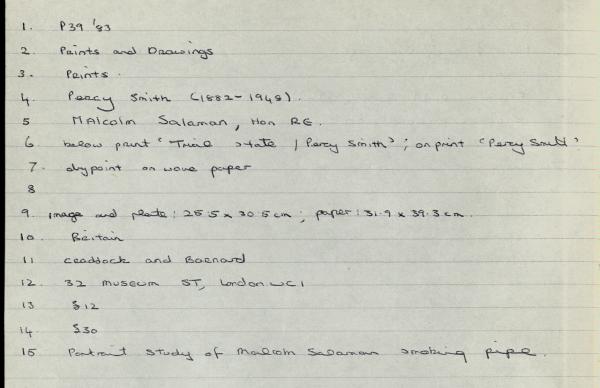 1. P39 '83
2. Prints and Drawings
3. Prints.
4. Percy Smith (1882-1948).
5 Malcolm Salaman, Hon RE.
6 below print 'Trial state / Percy Smith'; on print 'Percy Smith'
7. drypoint on wove paper
8
9. image and plate: 25.5 x 30.5 cm; paper: 31.9 x 39.3 cm.
10. Britain
11 Craddock and Barnard
12. 32 Museum ST, London WC1
13 $12
14 $30
15 Portrait study of Malcolm Salaman smoking pipe.